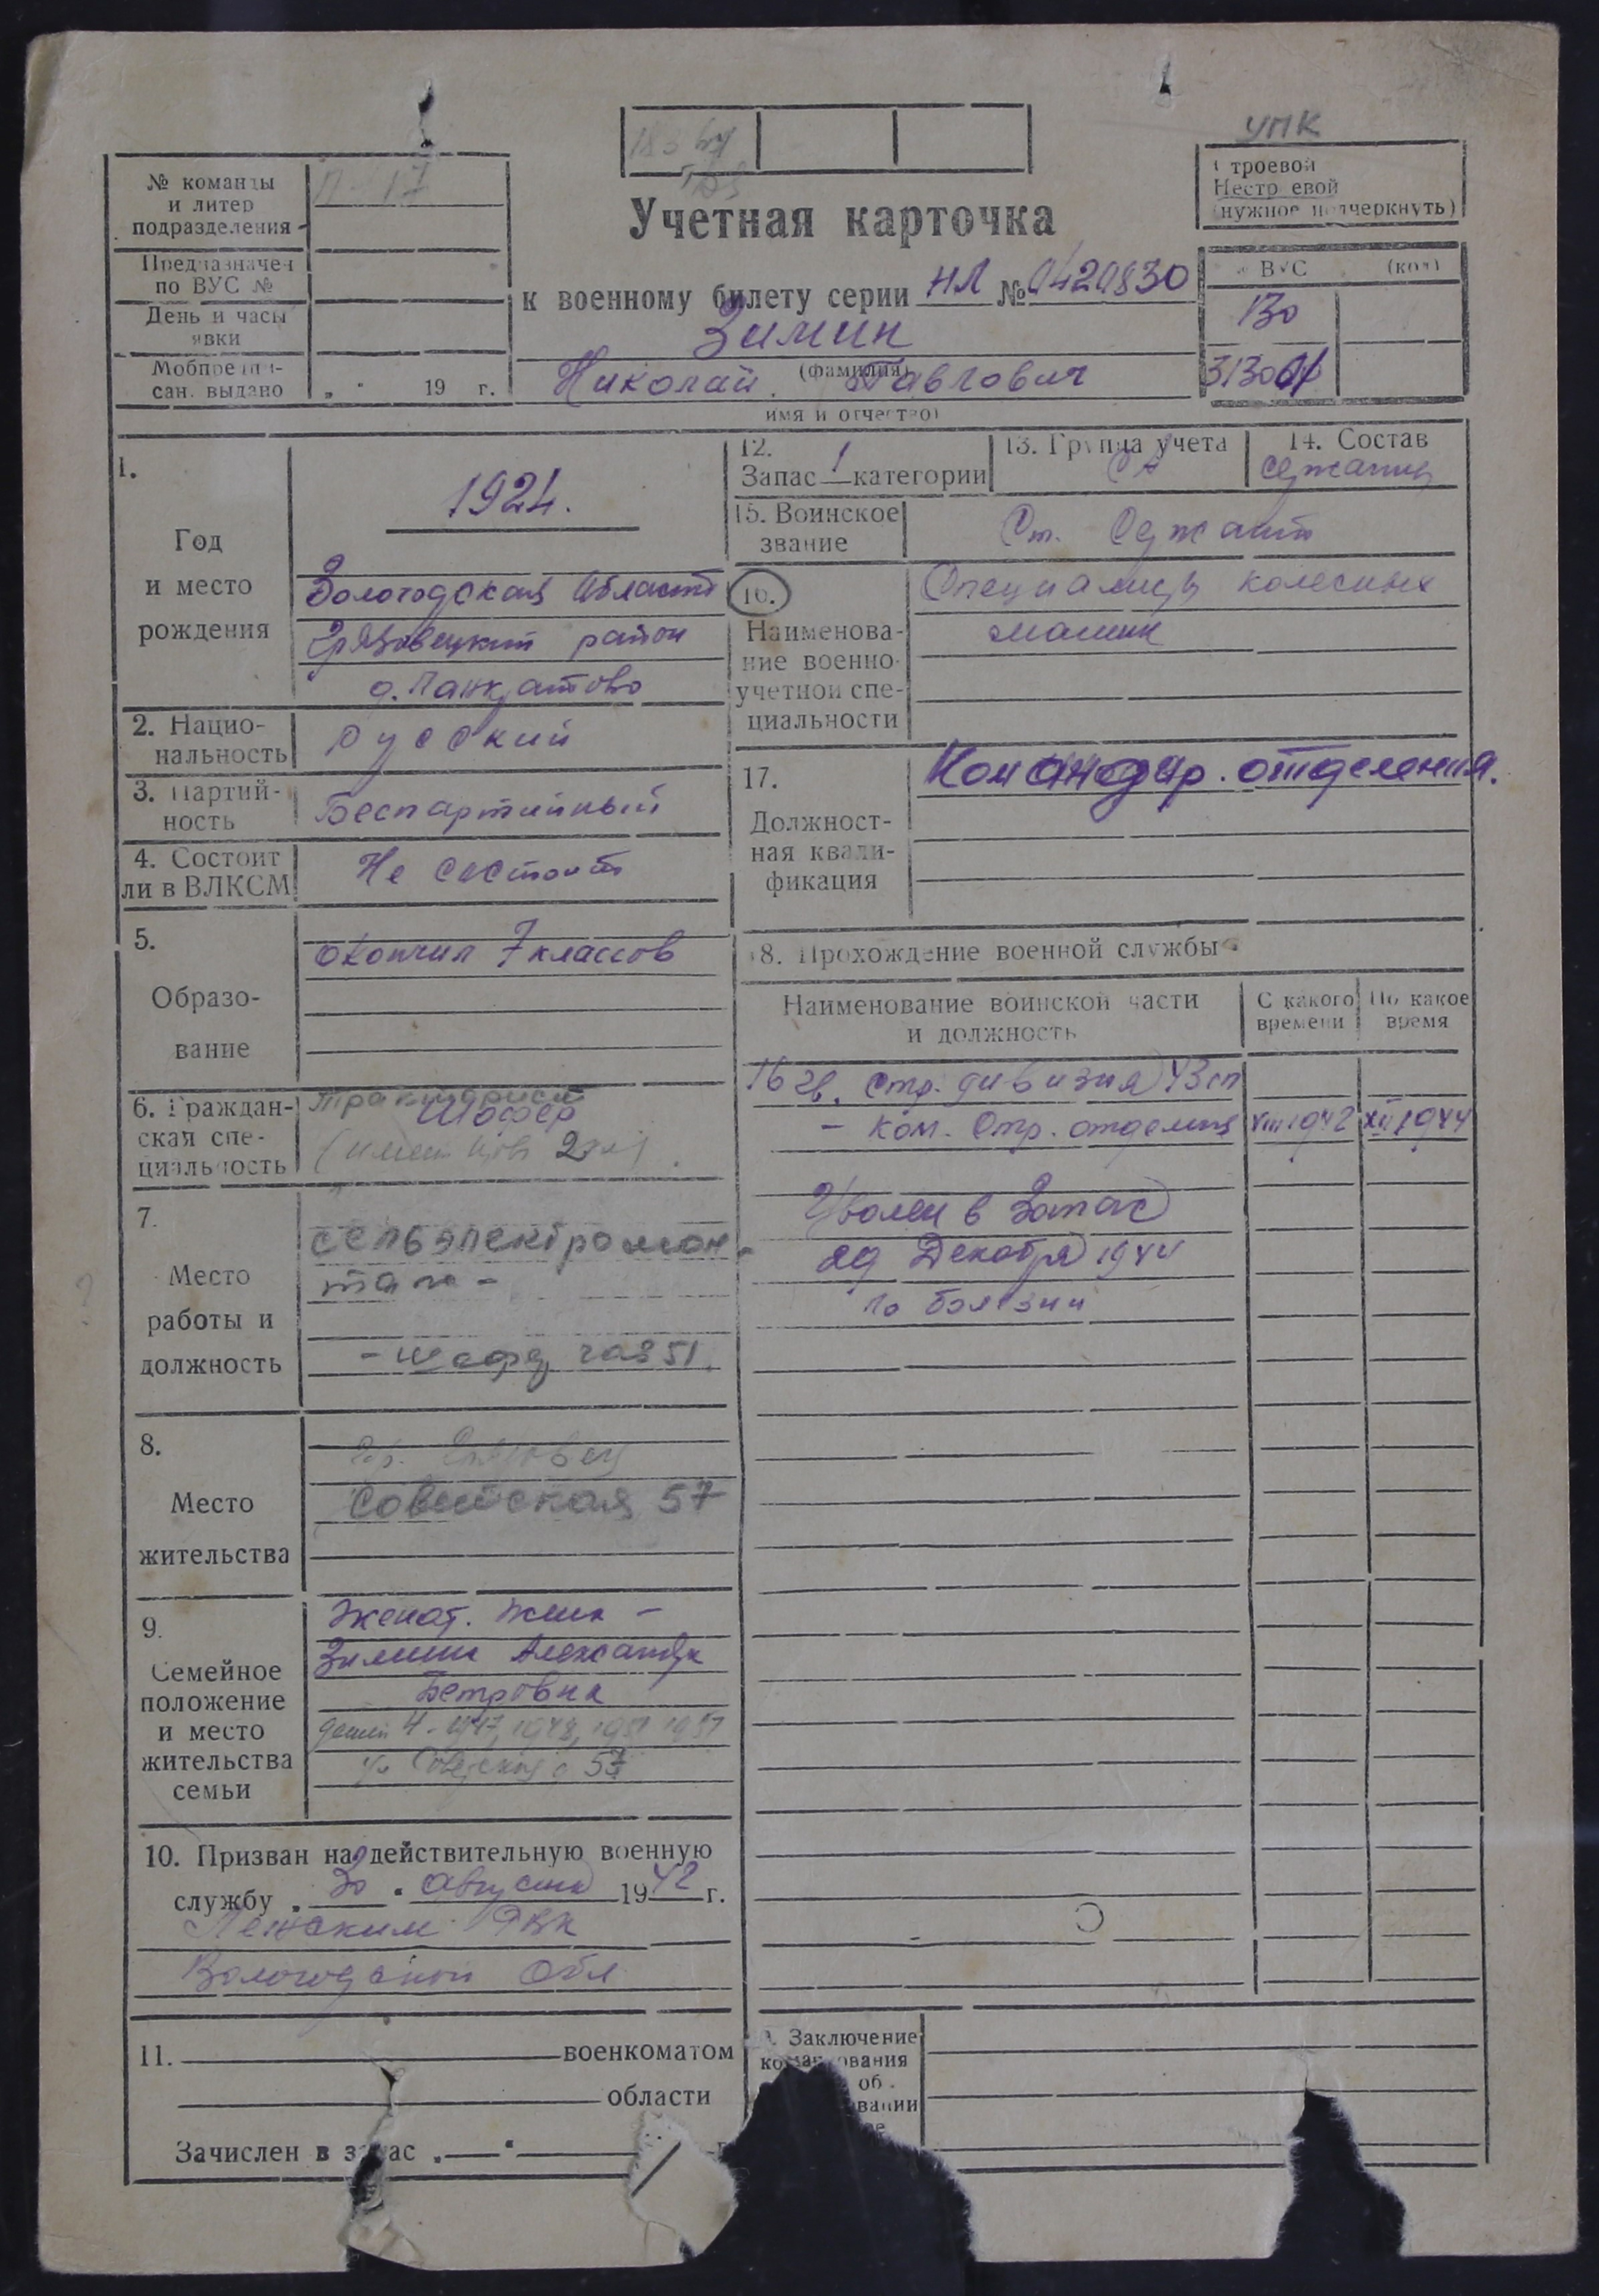 УПК
№ команды
и литер
подразделения
П-17
Предназначен
по ВУС №
День и часы
явки
Мобпредпи-
сан. выдано
„ " 19 г.
Учетная карточка
к военному билету серии НЛ № 0420830
Зимин
(фамилия)
Николай Павлович
имя и отчество)
Строевой
Нестроевой
(нужное подчеркнуть)
ВУС (код)
130
1.
Год
и место
рождения
1924.
Вологодская область
Грязовецкий район
д. Панкратово
2. Нацио-
нальность
русский
3. Партий-
ность
Беспартийный
4. Состоит
ли в ВЛКСМ
Не состоит
5.
Образо-
вание
окончил 7 классов
6. Граждан-
ская спе-
циальность
тракторист
Шофер
7.
Место
работы и
должность
сельэлектромон-
таж -
- шофер газ 51.
8.
Место
жительства
гр. Грязовец
Советская 57
9.
Семейное
положение
и место
жительства
семьи
Женат. жена -
Зимина Александра
Петровна
детей 4 - 1947, 1948, 1951 1957
ул Советская 57
10. Призван на действительную военную
службу „ 30 " августа 1942 г.
Лежским РВК
Вологодской обл
11. военкоматом
области
Зачислен в запас „ "
12.
Запас 1 категории
13. Группа учета
СА
14. Состав
сержанты
15. Воинское
звание
Ст. Сержант
16.
Наименова-
ние военно-
учетной спе-
циальности
Специалисты колесных
машин
17.
Должност-
ная квали-
фикация
Командир. отделения.
18. Прохождение военной службы
Наименование воинской части
и должность
С какого
времени
По какое
время
16 гв. стр. дивизия 43 сп
- ком. стр. отделения VIII 1942 XII 1944
Уволен в запас
29 Декабря 1944
по болезни
Заключение
командования
об